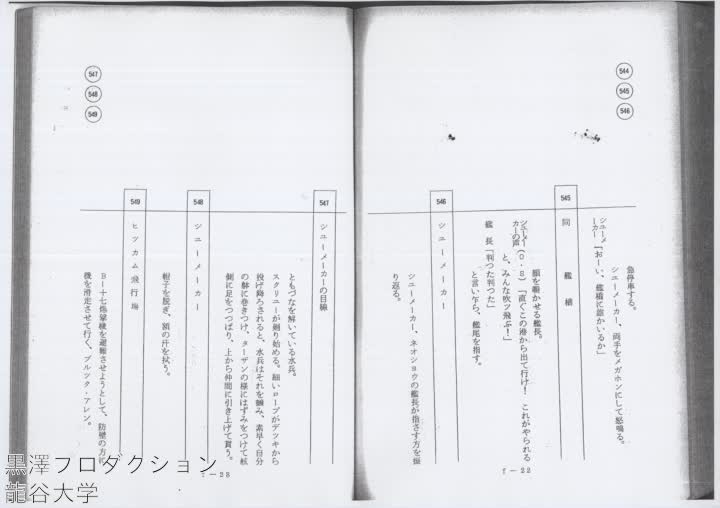 544
545
546
急停車する。
シユーメーカー、両手をメガホンにして怒鳴る。
シユーメーカー「おーい、艦橋に誰かいるか」
545 同　艦橋
顔を覗かせる艦長。
シユーメーカーの声(O・S)「直ぐこの港から出て行け！　これがやられると、みんな吹ッ飛ぶ！」
艦長「判つた判つた」
と言い乍ら、艦尾を指す。
546 シユーメーカー
シユーメーカー、ネオシヨウの艦長が指さす方を振
り返る。
f－22
547
548
549
547 シユーメーカーの目線
ともづなを解いている水兵。
スクリユーが廻り始める。細いロープがデツキから
投げ降ろされると、水兵はそれを掴み、素早く自分
の躰に巻きつけ、ターザンの様にはずみをつけて舷
側に足をつつぱり、上から仲間に引き上げて貰う。
548 シユーメーカー
帽子を脱ぎ、額の汗を拭う。
549 ヒツカム飛行場
B－十七爆撃機を避難させようとして、防壁の方に
機を滑走させて行く、ブルツク・アレン。
f－23
黒澤プロダクション
龍谷大学